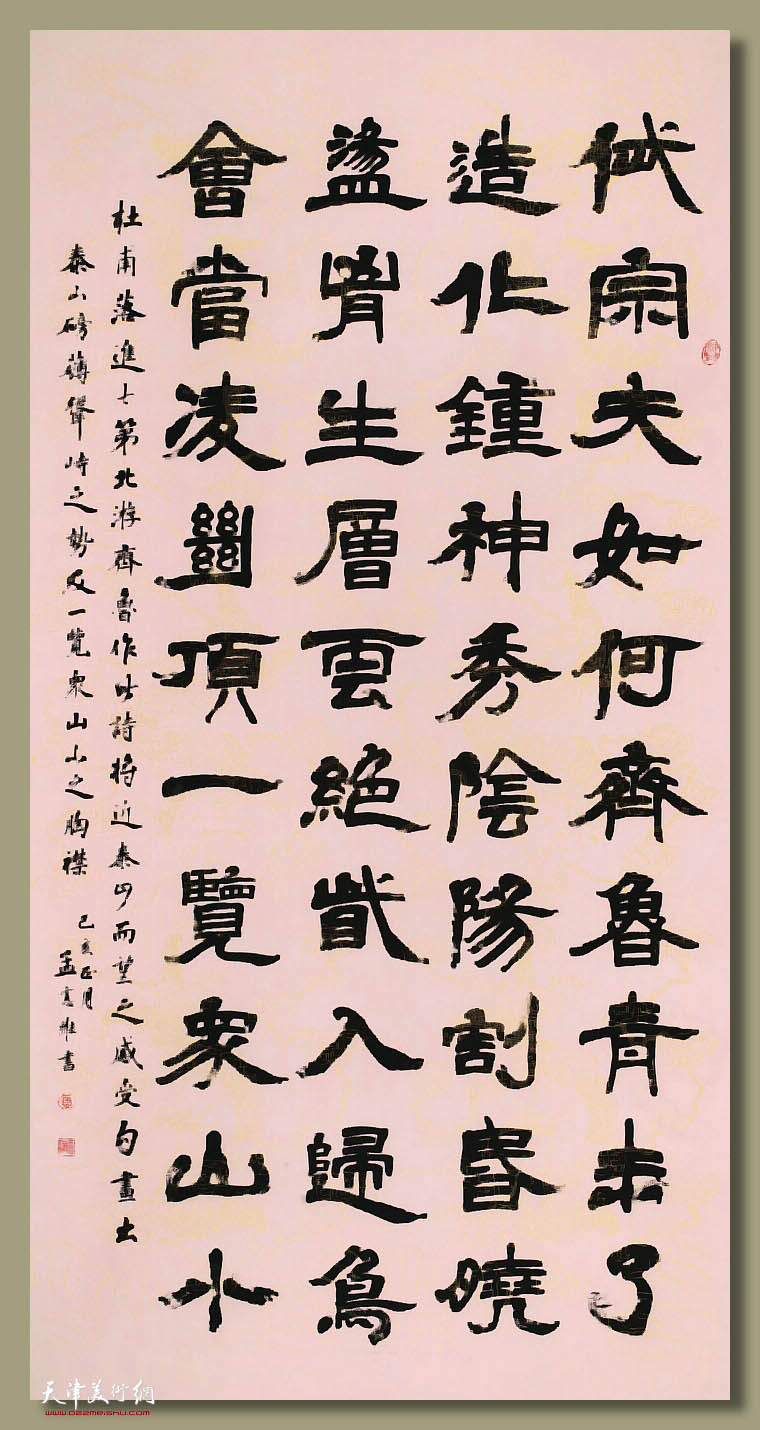 岱宗夫如何齊魯青未了
造化鍾神秀陰陽割昏曉
盪胷生層雲絕眥入歸鳥
會當凌𢇍頂一覽衆山小
杜甫落進士第北游齊魯作此詩將近泰山而望之感受勾畫出
泰山磅礴聳峙之勢及一覽衆山小之胸襟
己亥正月
孟憲維書
天津美術網
www.022meishu.com